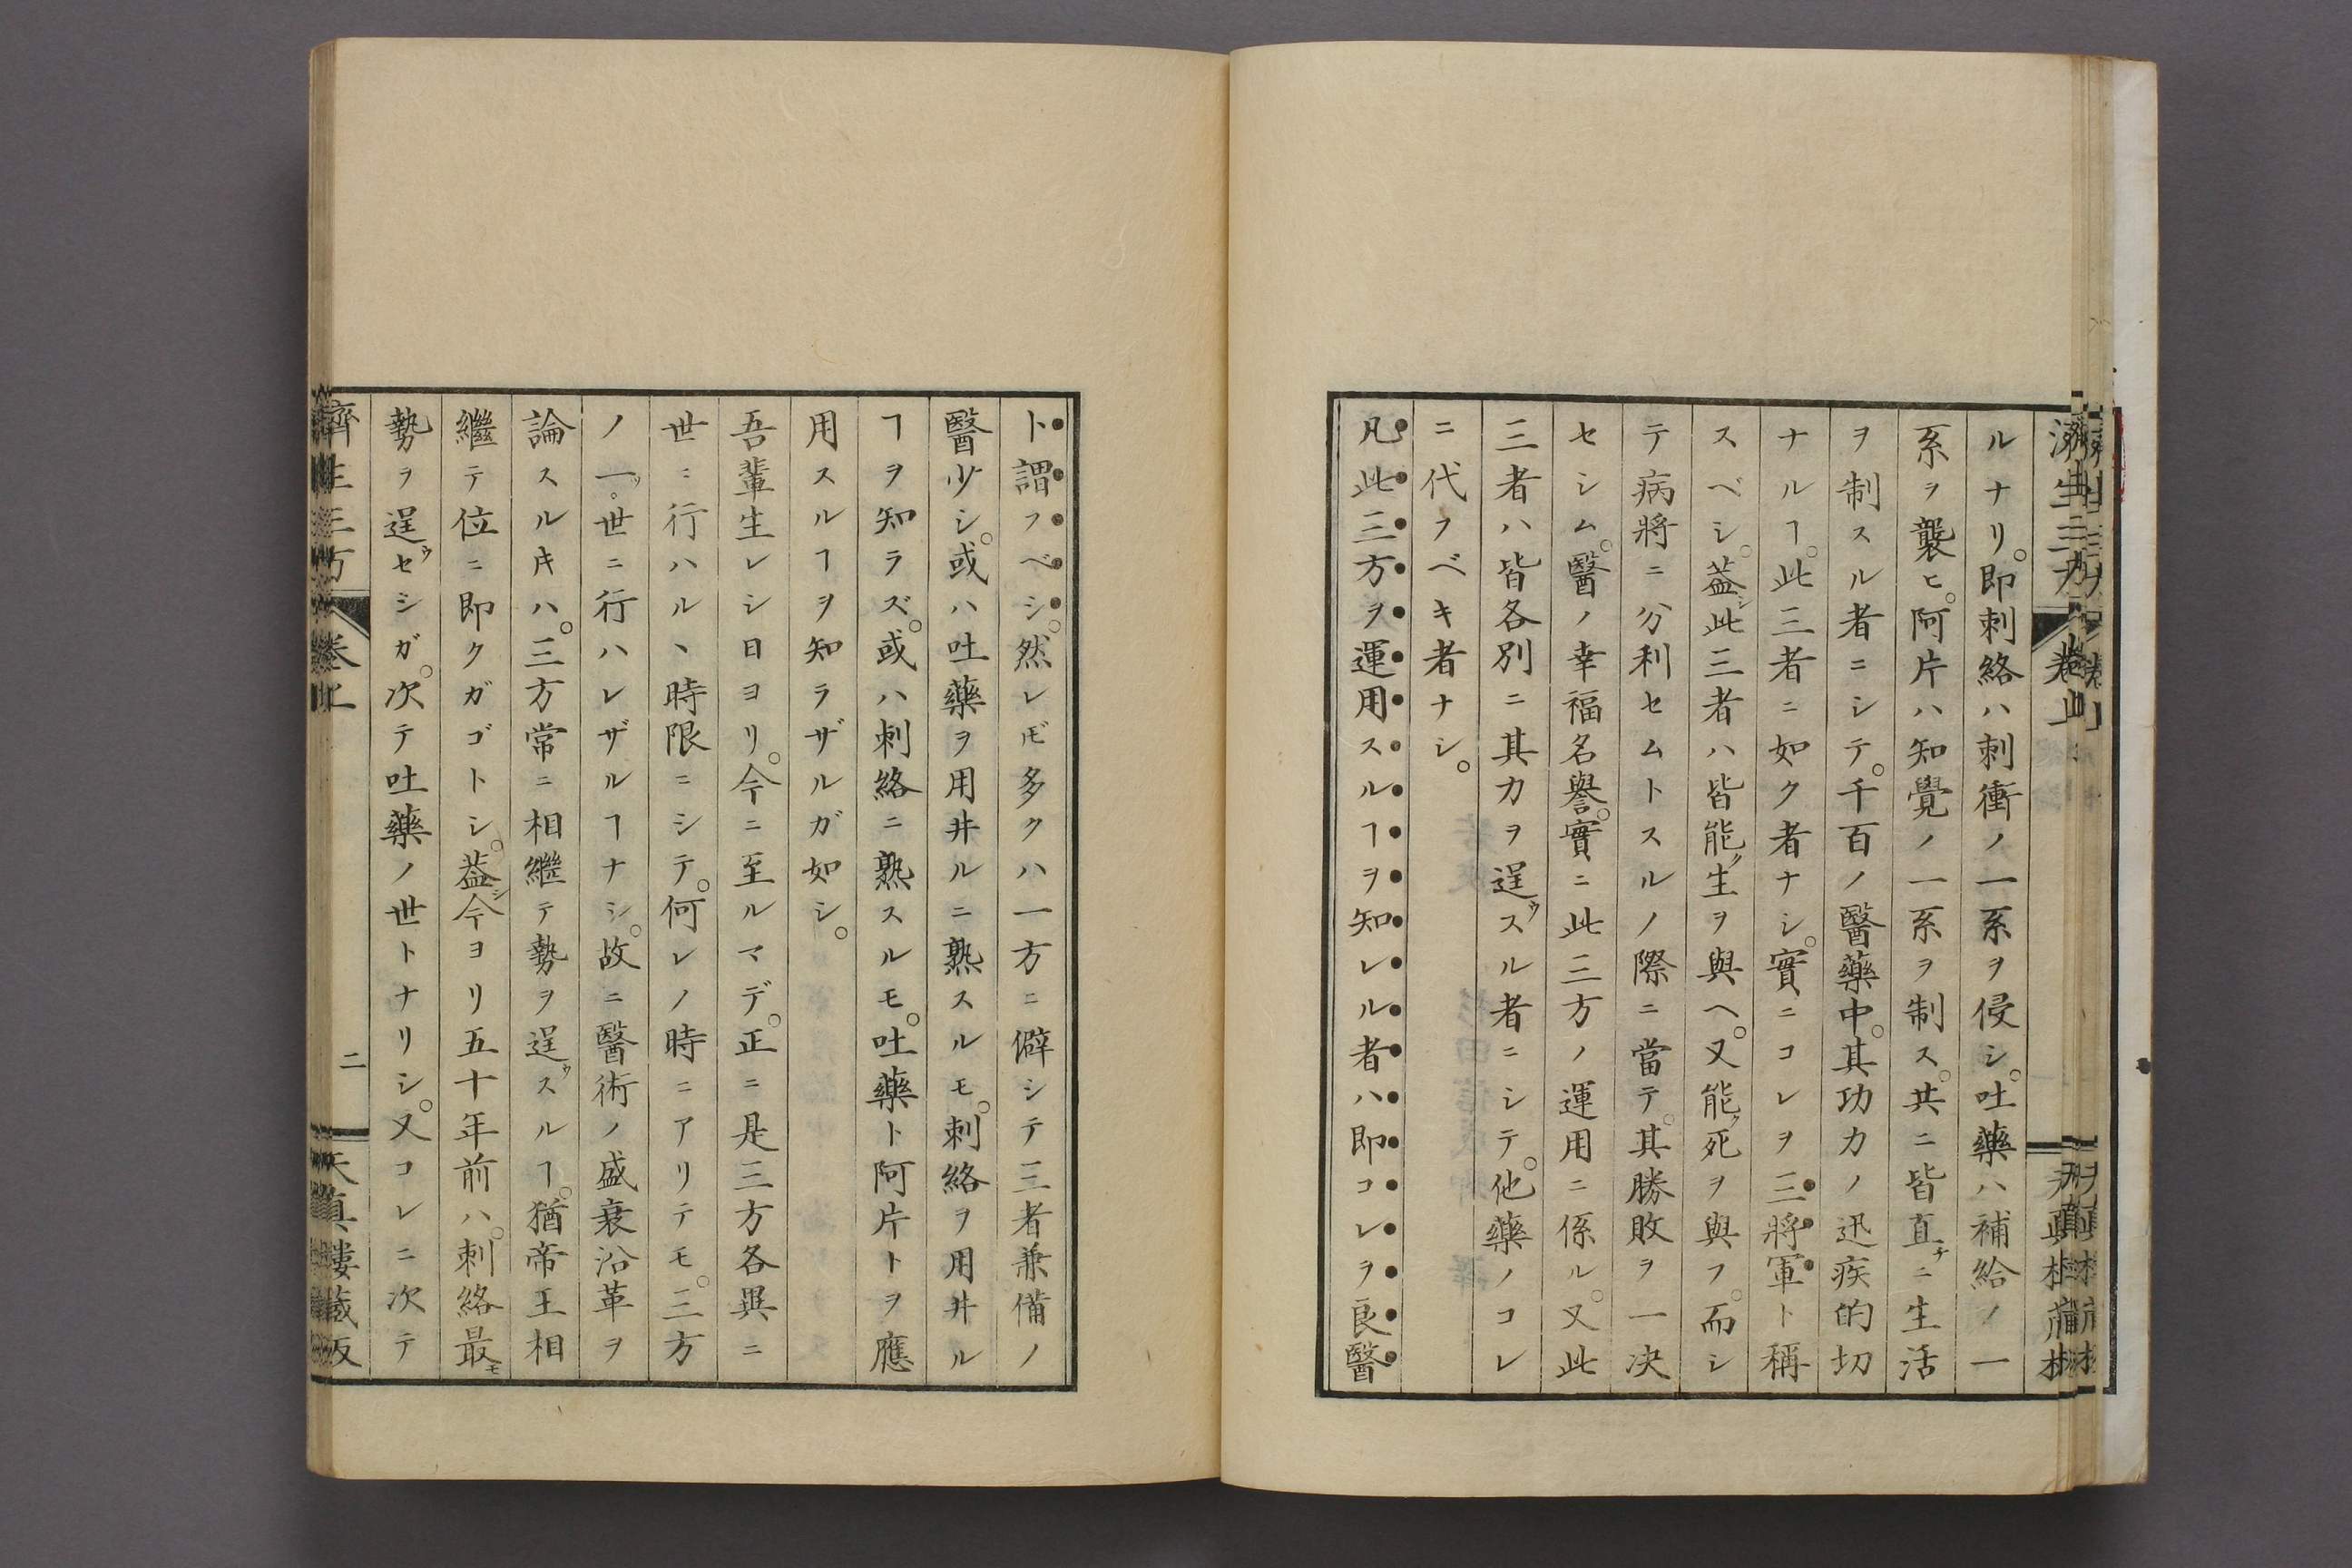 ルナリ。即刺絡ハ刺衝ノ一系ヲ侵シ。吐藥ハ補給ノ一
系ヲ襲ヒ。阿片ハ知覺ノ一系ヲ制ス。共ニ皆直チニ生活
ヲ制スル者ニシテ。千百ノ醫藥中。其功力ノ迅疾的切
ナルヿ。此三者ニ如ク者ナシ。實ニコレヲ三將軍ト稱
スベシ。葢シ此三者ハ皆能ク生ヲ與ヘ。又能ク死ヲ與フ。而シ
テ病將ニ分利セムトスルノ際ニ當テ。其勝敗ヲ一决
セシム。醫ノ幸福名譽。實ニ此三方ノ運用ニ係ル。又此
三者ハ皆各別ニ其力ヲ逞ウスル者ニシテ。他藥ノコレ
ニ代フベキ者ナシ。
凡此三方ヲ運用スルヿヲ知レル者ハ即コレヲ良醫
ト謂フベシ。然レ𪜈多クハ一方ニ僻シテ三者兼備ノ
醫少シ。或ハ吐藥ヲ用井ルニ熟スルモ。刺絡ヲ用井ル
ヿヲ知ラズ。或ハ刺絡ニ熟スルモ。吐藥ト阿片トヲ應
用スルヿヲ知ラザルガ如シ。
吾輩生レシ日ヨリ。今ニ至ルマデ。正ニ是三方各異ニ
世ニ行ハルヽ時限ニシテ。何レノ時ニアリテモ。三方
ノ一ツ。世ニ行ハレザルヿナシ。故ニ醫術ノ盛衰沿革ヲ
論スルキハ。三方常ニ相繼テ勢ヲ逞ウスルヿ。猶帝王相
繼テ位ニ即クガゴトシ。葢シ今ヨリ五十年前ハ。刺絡最モ
勢ヲ逞ウセシガ。次テ吐藥ノ世トナリシ。又コレニ次テ
濟生三方 卷上 二 天真樓蔵版